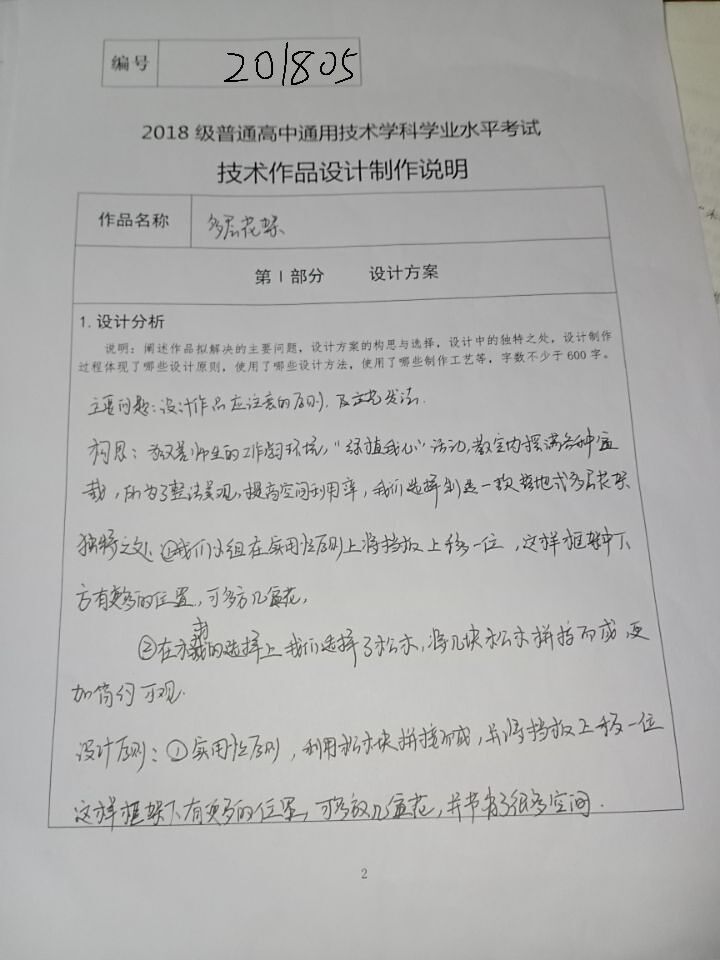 编号 201805
2018 级普通高中通用技术学科学业水平考试
技术作品设计制作说明
作品名称 多层花架
第 1 部分 设计方案
1. 设计分析
说明：阐述作品拟解决的主要问题，设计方案的构思与选择，设计中的独特之处，设计制作
过程体现了哪些设计原则，使用了哪些设计方法，使用了哪些制作工艺等，字数不少于 600 字。
主要问题：设计作品应注意的原则，及方法
构思： 师生的工作 环境，“绿植我心”活动，教室内摆满各种盆
栽，所为了整洁美观，提高空间利用率，我们选择制造一款落地式多层花架
独特之处：①我们小组在实用性原则上将挡板上移一位，这样框架中下
方有更多的位置，可多方几盆花，
②在木材的选择上我们选择了松木，将几块松木拼接而成，更
加简约可观．
设计原则：①实用性原则，利用松木块拼接而成，并将挡板上移一位
这样框架下有更多的位置，可多放几盆花，并节省了很多空间．
2